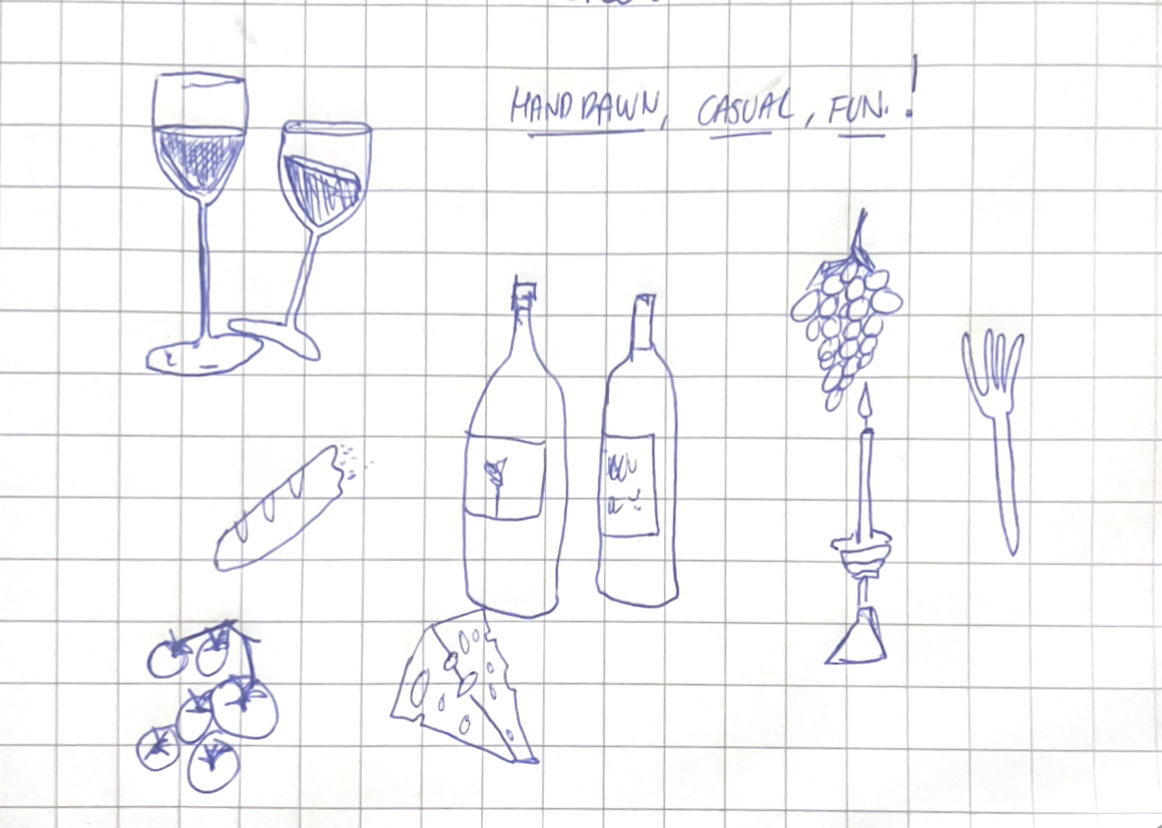 HAND DAWN, CASUAL, FUN.!